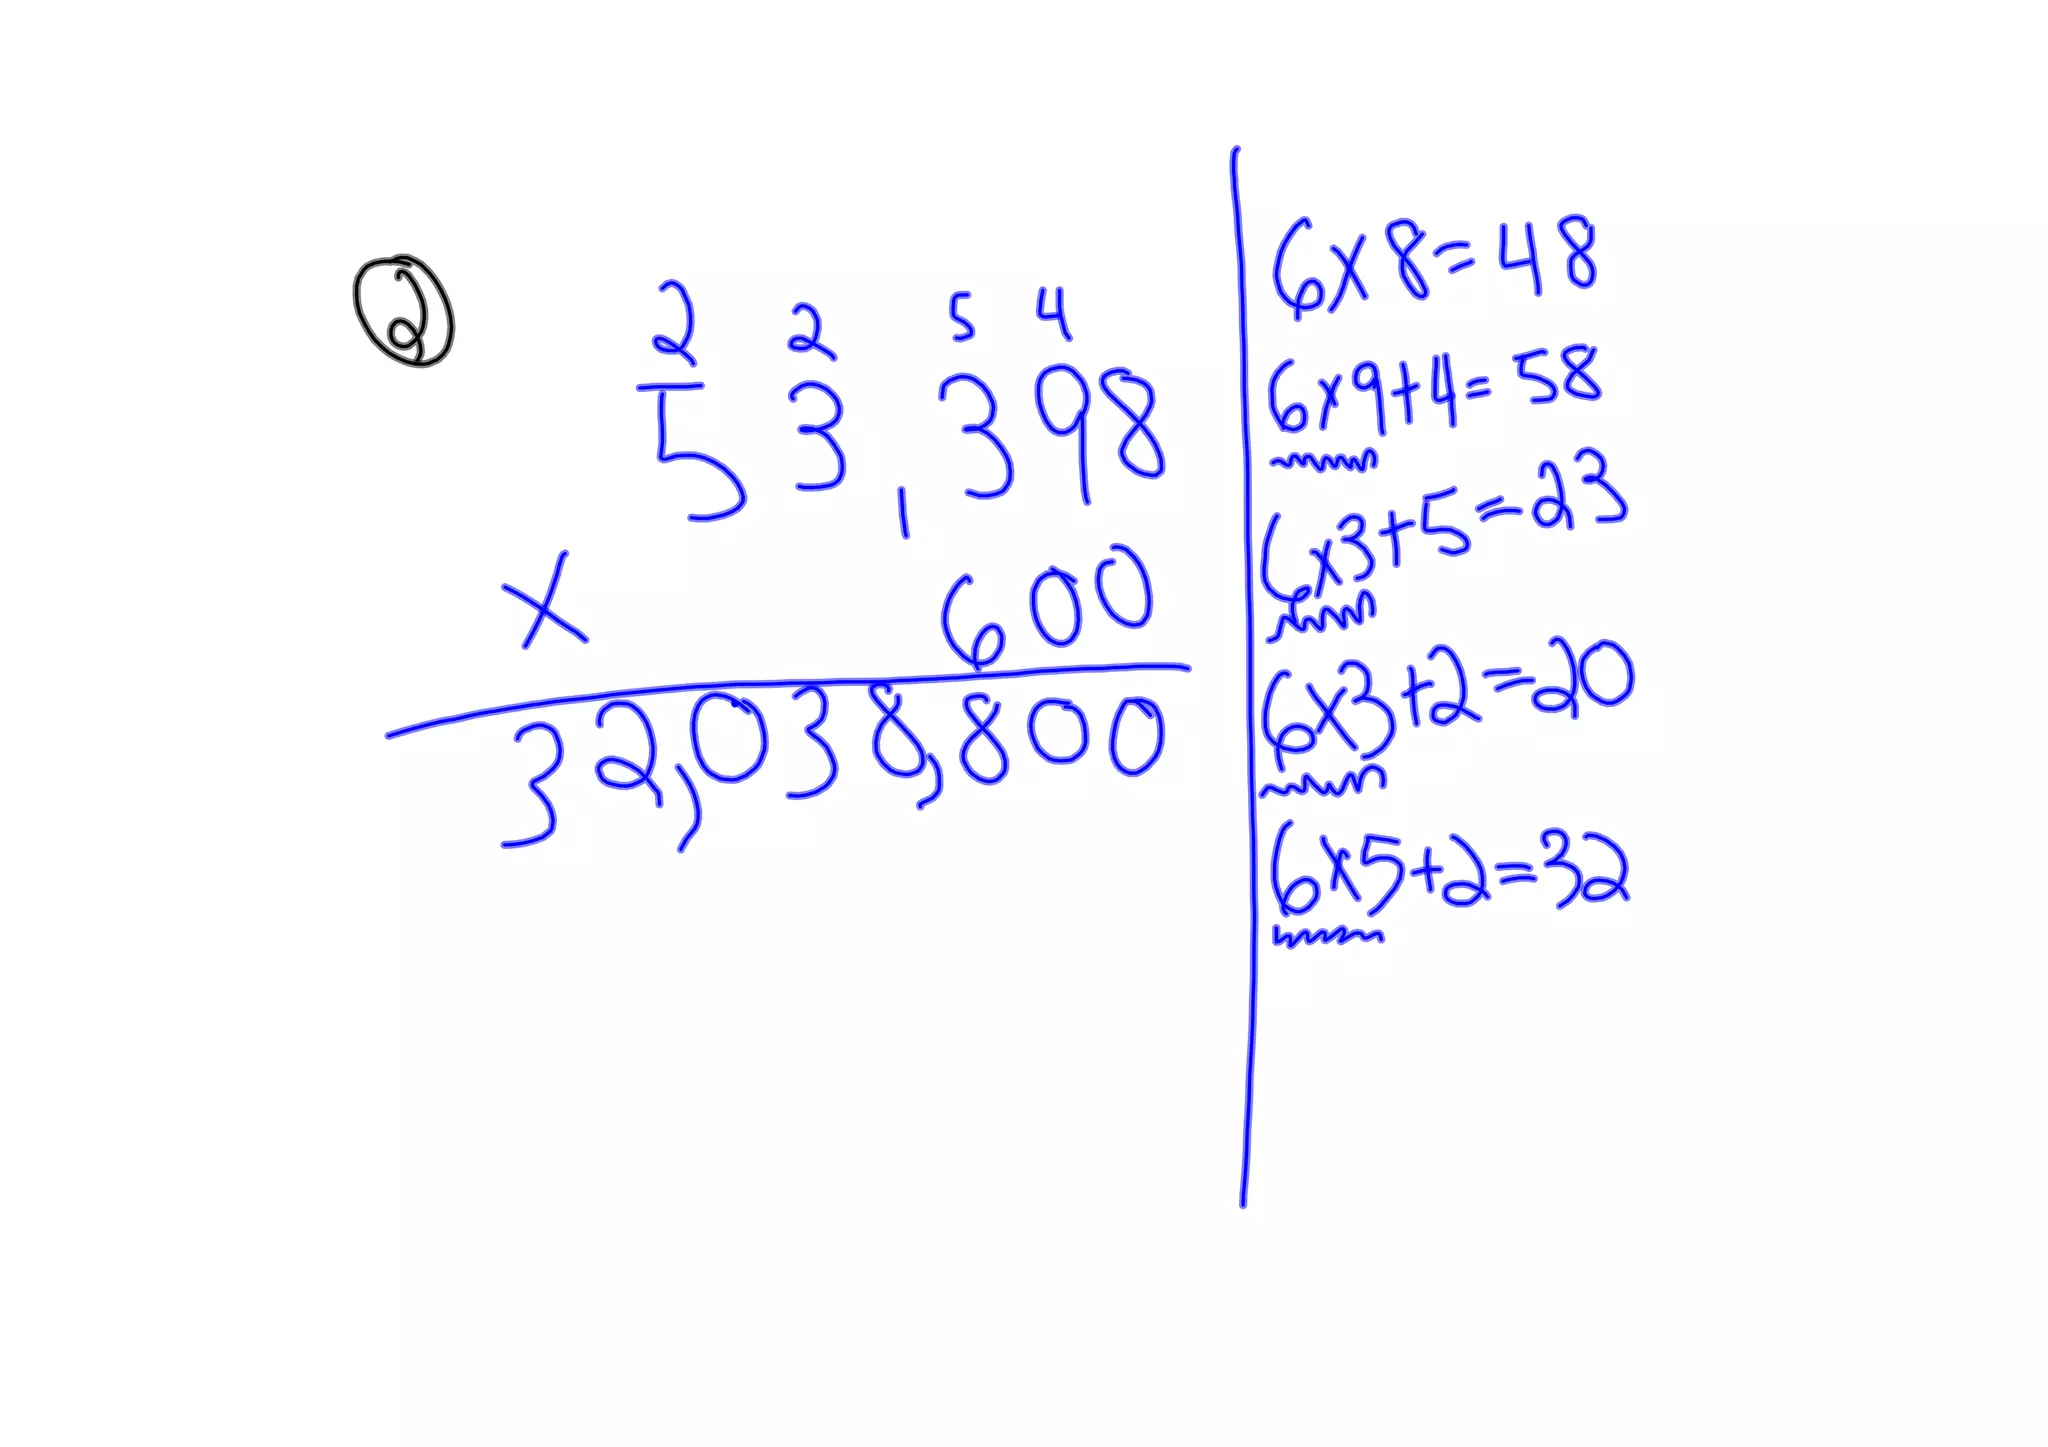 2
2 2 5 4
53,398
x 600
32,038,800
6x8=48
6x9+4=58
6x3+5=23
6x3+2=20
6x5+2=32